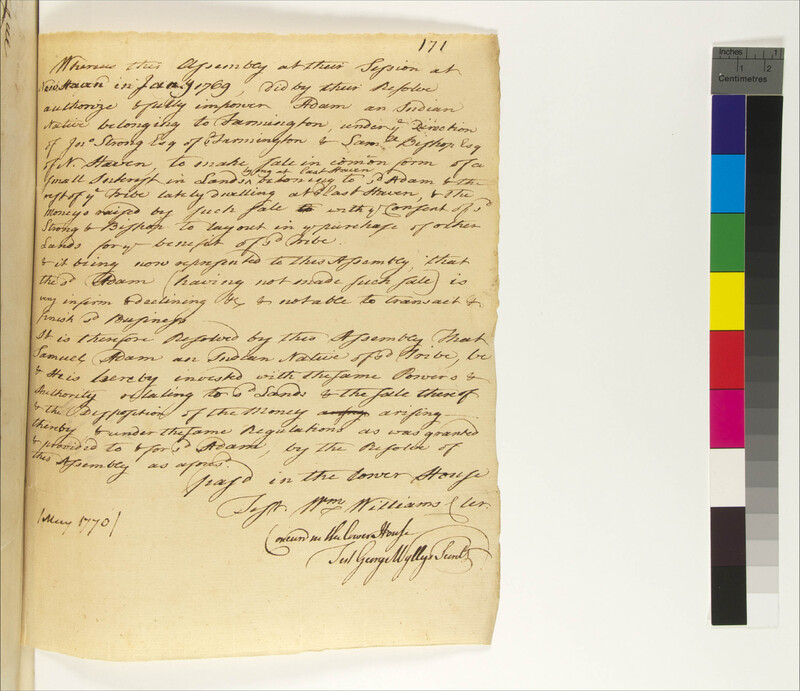 171
Whereas this Assembly at their Session at
New Haven in Jan.y 1769, did by their Resolve
authorize & fully impower Adam an Indian
Native belonging to Farmington, under ye Direction
of Jno Strong Esq of Farmington & Sam.ll Bishop Esq
of N. Haven, to make sale in comon form of a
lying at East Haven
small Interest in Lands belonging to sd Adam & the
rest of ye Tribe lately dwelling at East Haven, & the
Moneys raised by such sale with ye Consent of sd
Strong & Bishop to lay out in ye purchase of other
Lands for ye benefit of sd Tribe.
& it being now represented to this Assembly, that
the sd Adam (having not made such sale) is
very infirm & declining &c & not able to transact &
finish sd Business
It is therefore Resolved by this Assembly That
Samuel Adam an Indian Native of sd Tribe, be
& He is hereby invested with the same Powers &
Authority relating to sd Lands & the sale thereof
& the Disposition of the Money arising
thereby & under the same Regulations as was granted
& provided to & for sd Adam, by the Resolve of
this Assembly as aforesd.
pass'd in the Lower House
Test Wm Williams Cler.
[May 1770]
Concurd in the Lower House
Test George Wyllys Secretr
Inches 1 2
Centimetres